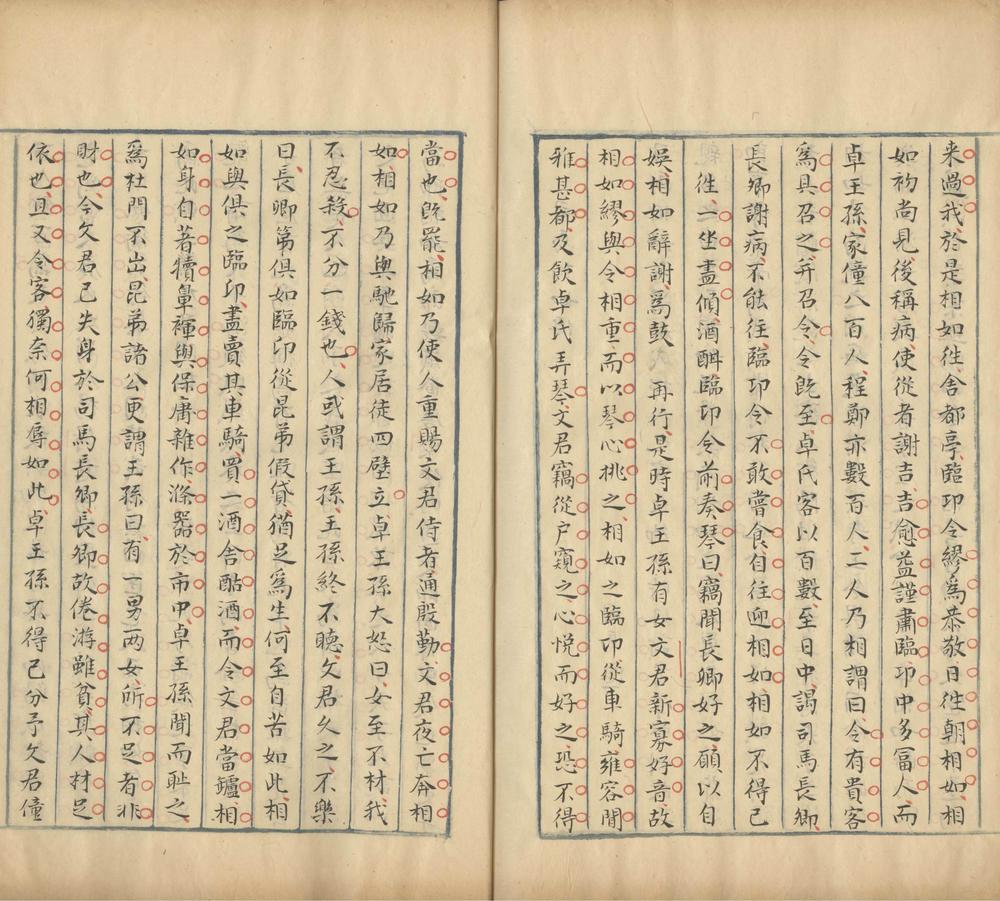 来過我於是相如徃舍都亭臨卭令繆為恭敬日徃朝相如相
如初尚見後稱病使從者謝吉吉愈益謹肅臨卭中多冨人而
卓王孫家僮八百人程鄭亦數百人二人乃相謂曰令有貴客
為具召之并召令令既至卓氏客以百數至日中謁司馬長卿
長卿謝病不能往臨卭令不敢嘗食自往迎相如相如不得已
徃一坐盡傾酒酣臨卭令前奏琴曰竊聞長卿好之願以自
娛相如辭謝為鼓 再行是時卓王孫有女文君新寡好音故
相如繆與令相重而以琴心挑之相如之臨卭從車騎雍容閒
雅甚都及飲卓氏弄琴文君竊從户窺之心悅而好之恐不得
當也既罷相如乃使人重賜文君侍者通殷勤文君夜亡奔相
如相如乃與馳歸家居徒四壁立卓王孫大怒曰女至不材我
不忍殺不分一錢也人或謂王孫王孫終不聽文君久之不樂
曰長卿第俱如臨卭從昆弟假貸猶足為生何至自苦如此相
如與俱之臨卭盡賣其車騎買一酒舍酤酒而令文君當鑪相
如身自著犢鼻褌與保庸雜作滌器於市中卓王孫聞而耻之
為杜門不出昆弟諸公更謂王孫曰有一男两女所不足者非
財也今文君已失身於司馬長卿長卿故倦游雖貧其人材足
依也且又令客獨奈何相辱如此卓王孫不得已分予文君僮